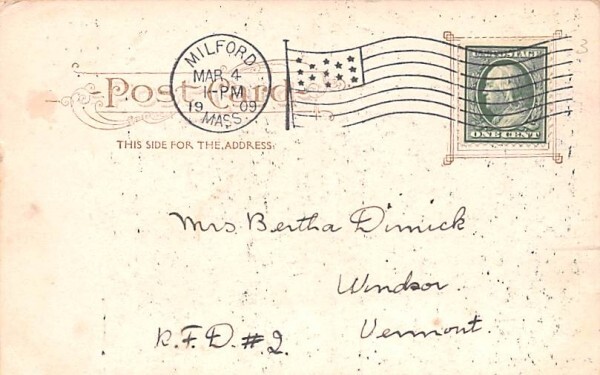 MILFORD
MAR 4
1-PM
1909
MASS.
Post Card
THIS SIDE FOR THE ADDRESS.
U.S. POSTAGE
ONE CENT
Mrs. Bertha Dimick
Windsor
Vermont
R.F.D. #2.
3